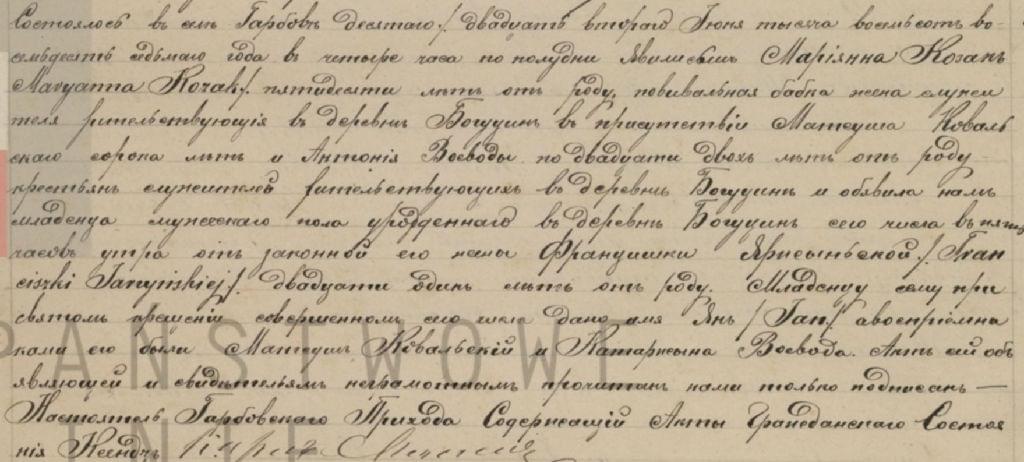 Состоялось въ селѣ Гарбовѣ десятаго / двадцать втораго Іюня тысяча восемьсотъ во-
семьдесятъ седьмаго года въ четыре часа по полудни Явилисьши Маріянна Козакъ
Maryanna Kozak/ пятидесяти лѣтъ отъ роду, повивальная бабка жена служи
теля жительствующія въ деревнѣ Богуцинъ въ присутствіи Матеуша Коваль
скаго сорока лѣтъ и Антонія Воеводы по двадцати двохъ лѣтъ отъ роду
крестьянъ служителей жительствующихъ въ деревнѣ Богуцинъ и объявила намъ
младенца мужескаго пола урожденнаго въ деревнѣ Богуцинъ сего числа въ пять
часовъ утра отъ законной его жены Францишки Яржыньской /Fran
ciszki Jarzyńskiej/ двадцати одинъ лѣтъ отъ роду. Младенцу сему при
святомъ крещеніи совершенномъ сего числа дано имя Янъ /Jan/ авоспріемни
ками его были Матеушъ Ковальскій и Катаржына Воевода. Актъ сей объ
являющей и свидѣтелямъ неграмотнымъ прочитанъ нами только подписанъ —
Настоятель Гарбовскаго Прихода Содержащій Акты Гражданскаго Состоя
нія Ксендзъ
PANSTWOWE